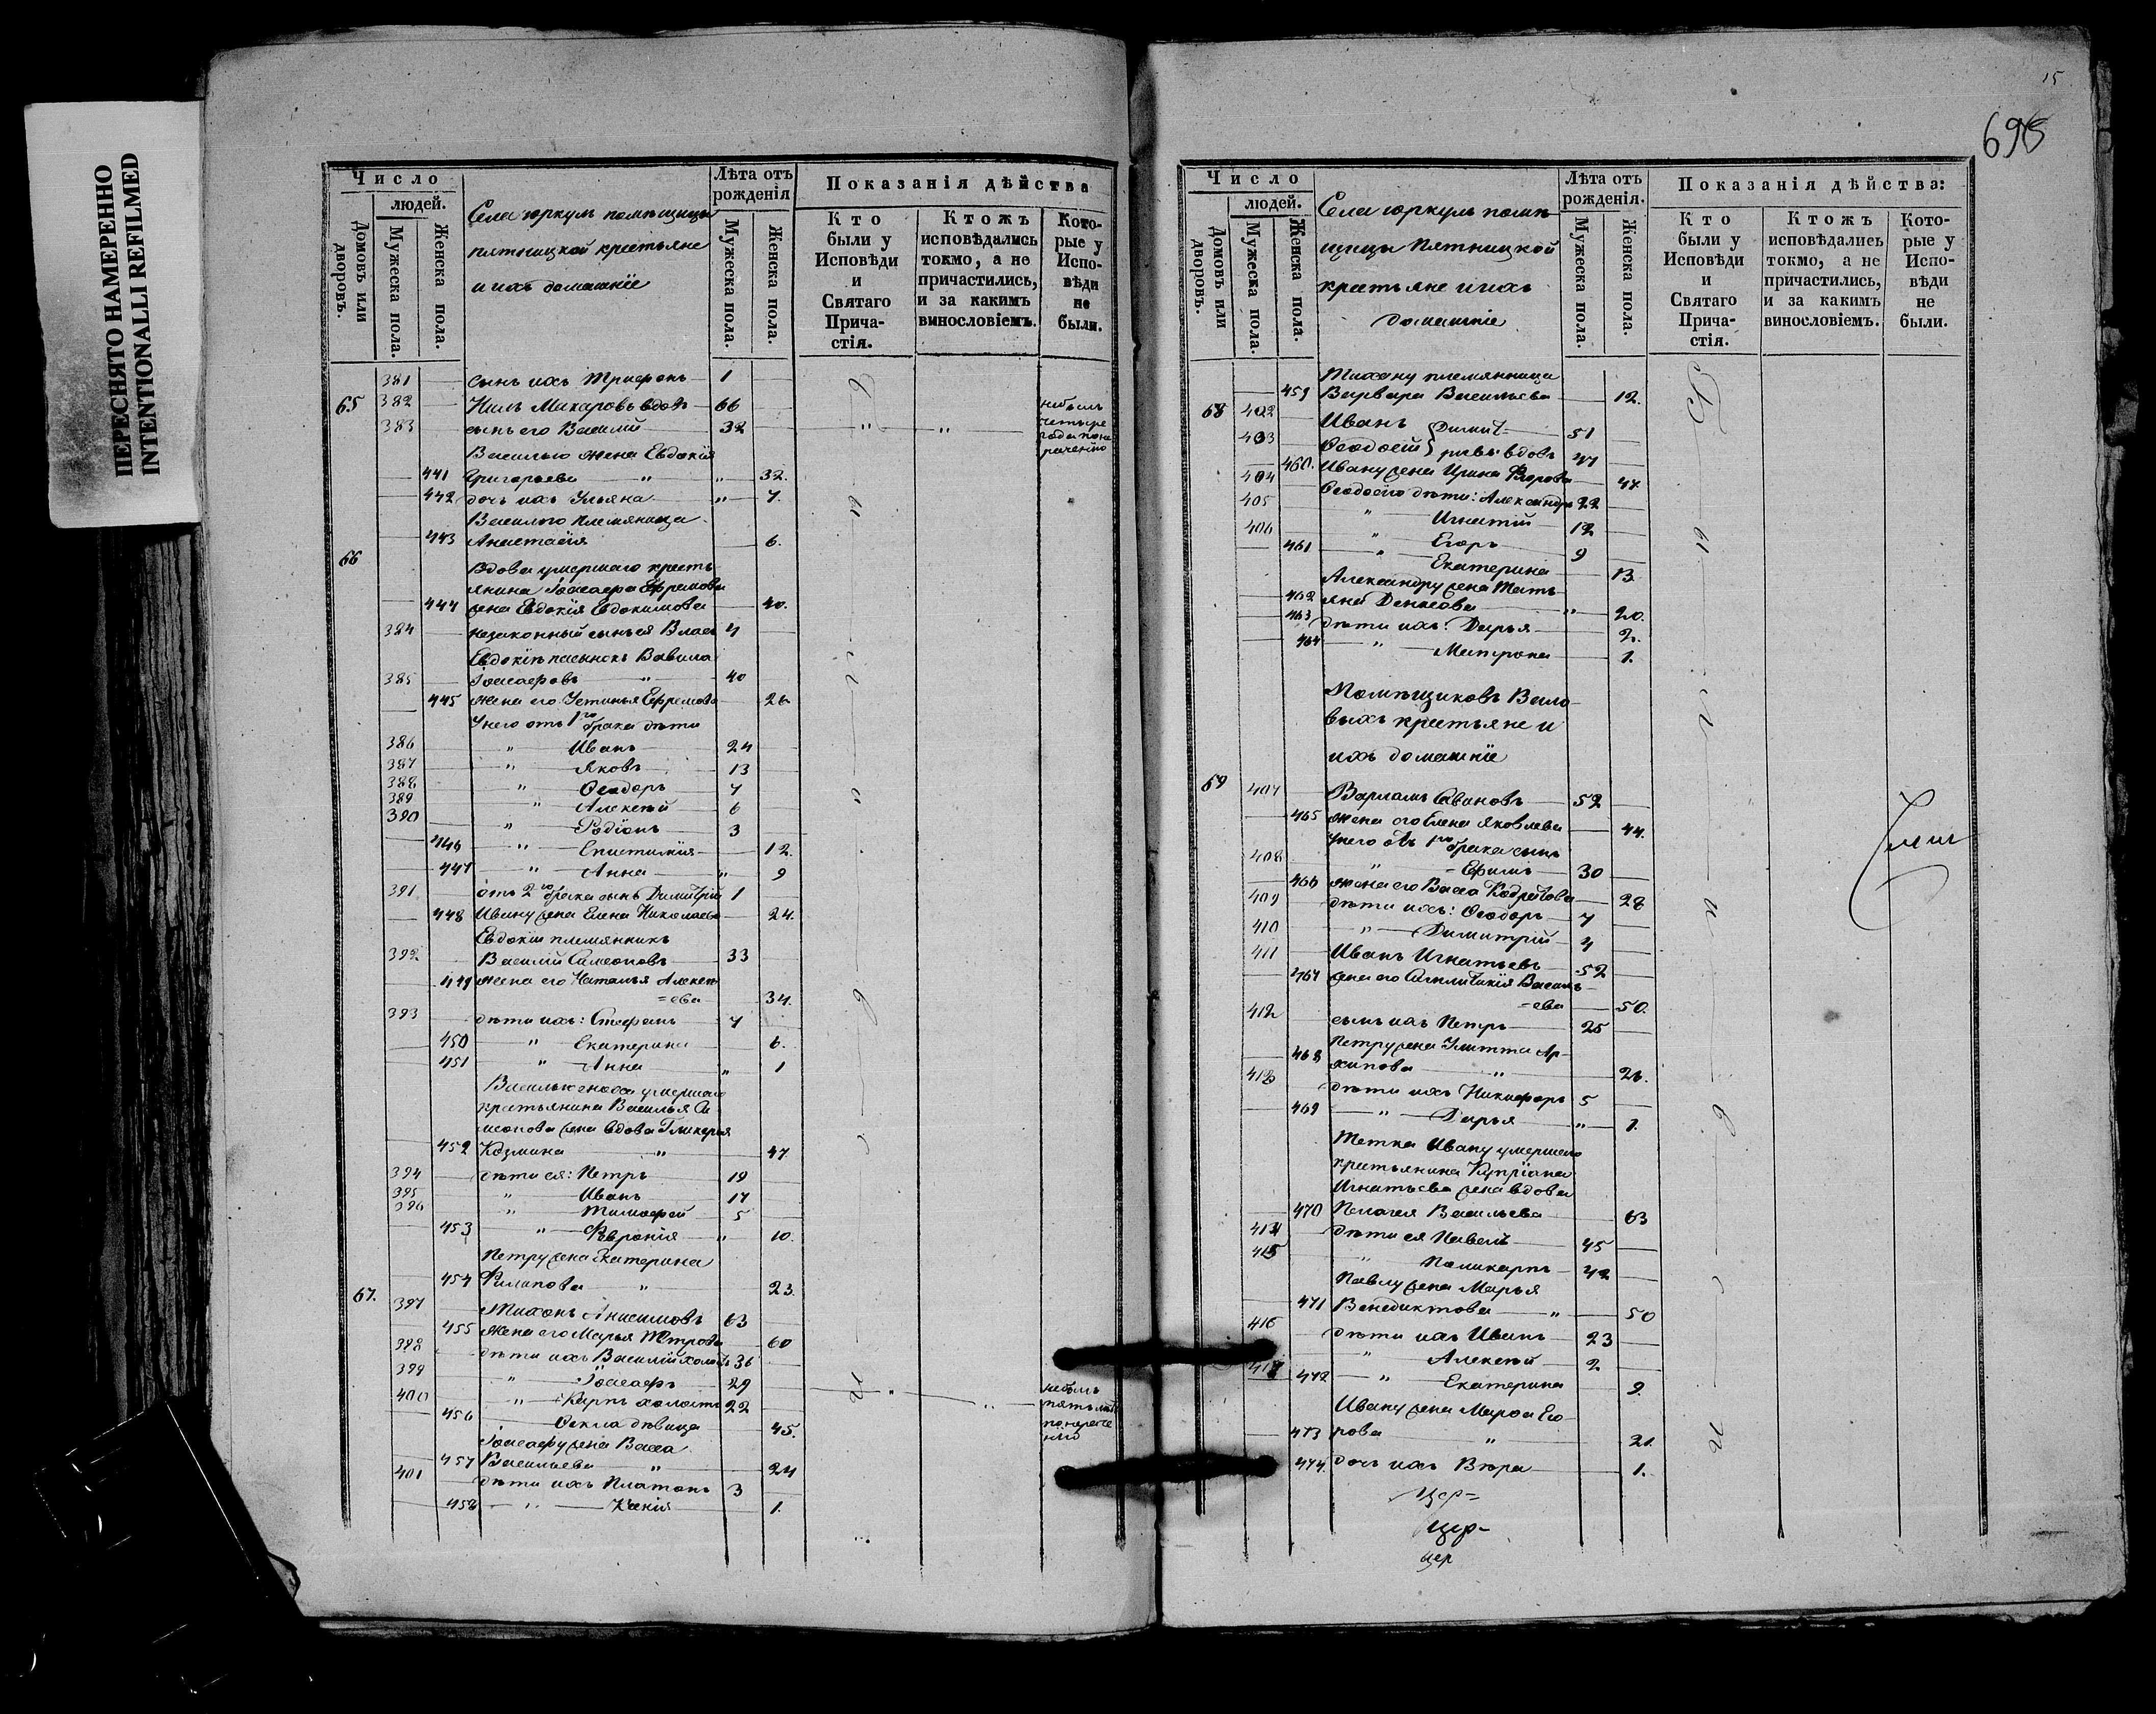 ПЕРЕСНЯТО НАМЕРЕННО
INTENTIONALLI REFILMED
Число
людей.
Домовъ или дворовъ.
Мужеска пола.
Женска пола.
Села юркулъ помѣщицы
пятницкой крестьяне
и ихъ домашніе
Лѣта отъ
рожденія
Мужеска пола.
Женска пола.
Показанія дѣйства
Кто
были у
Исповѣди
и
Святаго
Прича-
стія.
Ктожъ
исповѣдались
токмо, а не
причастились,
и за какимъ
винословіемъ.
Кото-
рые у
Испо-
вѣди
не
были.
381 сынъ ихъ Трифонъ 1
65 382 Нилъ Макаровъ вдовъ 66
383 сынъ его Василій 32
небылъ
четыре
года по не
рачению
Василью жена Евдокія
441 Григорьева " " 32.
442 дочь ихъ Ульяна " 7.
Василью племяница
443 Анастасія 6.
66 Вдова умершаго кресть
янина Іоасафа Ефремова
444 жена Евдокія Евдокимова 40.
384 незаконный сынъ ея Власъ 4
Евдокіи пасынокъ Вавила
385 Іоасафовъ " 40
445 жена его Устинья Ефремова 26
У него отъ 1го брака дѣти
386 " Иванъ 24
387 " Яковъ 13
388 " Ѳеодоръ 7
389 " Алексѣй 6
390 " Родіонъ 3
446 " Епистимія 12.
447 " Анна " 9
391 отъ 2го брака сынъ Димитрій 1
448 Ивану жена Елена Николаева 24.
Евдокіи племянникъ
392 Василій Симеоновъ 33
449 жена его Наталья Алексѣ
=ева 34.
393 дѣти ихъ: Стефанъ 7
450 " Екатерина 6.
451 " Анна " 1
умершаго
крестьянина Василья Си
меонова жена вдова Гликерья
452 Козмина " 47
394 дѣти ея: Петръ 19
395 " Иванъ 17
396 " Тимофей 5
453 " Февронія " 10.
Петру жена Екатерина
454 Филипова " 23.
67. 397 Тихонъ Анисимовъ 63
455 жена его Марья Петрова 60
398 дѣти ихъ Василій холостъ 36
399 " Іоасафъ 29
400 " Карпъ холостъ 22
небылъ
пять лѣтъ
по нераче
нию
456 Ѳекла дѣвица 45.
Іоасафу жена Васса
457 Васильева " 24
401 дѣти ихъ Платонъ 3
458 " Ксенія 1.
15
695
Число
людей.
Домовъ или дворовъ.
Мужеска пола.
Женска пола.
Села юркулъ помѣ
щицы Пятницкой
крестьяне и ихъ
домашніе
Лѣта отъ
рожденія.
Мужеска пола.
Женска пола.
Показанія дѣйства:
Кто
были у
Исповѣди
и
Святаго
Прича-
стія.
Ктожъ
исповѣдались
токмо, а не
причастились,
и за какимъ
винословіемъ.
Кото-
рые у
Испо-
вѣди
не
были.
Тихону племянница
459 Варвара Васильева 12.
68 402 Иванъ Димит- 51
403 Ѳеодосій ріевы вдовъ 47
460. Ивану жена Ирина Егорова 47.
404 Ѳеодосія дѣти: Александръ 22
405 " Игнатій 12
406 " Егоръ 9
461 " Екатерина 13.
Александру жена Тать
462 яна Денисова " 20.
463 дѣти ихъ: Дарья 2.
464 " Матрона 1.
Помѣщиковъ Вало
выхъ крестьяне и
ихъ домашніе
69 407 Варламъ Савиновъ 52
465 жена его Елена Яковлева 44.
У него отъ 1го брака сынъ
408 " Ефимъ 30
466 жена его Васса Кодратова 28
409 дѣти ихъ: Ѳеодоръ 7
410 " Димитрій 4
411 Иванъ Игнатьевъ 52
467 жена его Василь-
=ева 50.
412 сынъ ихъ Петръ 25
Петру жена Улитта Ар-
468 хипова " 26.
413 дѣти ихъ Никифоръ 5
469 " Дарья " 1.
Тетка Ивану умершаго
крестьянина Купріана
Игнатьева жена вдова
470 Пелагея Васильева 63
414 дѣти ея Павелъ 45
415 " Поликарпъ 42
Павлу жена Марья
471 Венедиктова " 50
416 дѣти ихъ Иванъ 23
417 " Алексѣй 2
472 " Екатерина 9.
Ивану жена Марѳа Его-
473 рова " 21.
474. дочь ихъ Вѣра 1.
цер=
цер-
цер